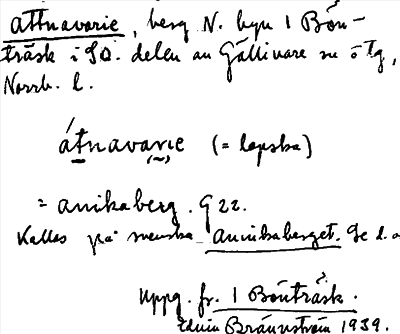 attnavarie, berg N. byn 1 Bön-
träsk i SO. delen av Gällivare sn o tg,
Norrb. l.
átnavarıe (= lapska)
= anikaberg. G 22.
Kallas på svenska Annikaberget. Se d.o
Uppg. fr. 1 Bönträsk.
Edvin Brännström 1939.